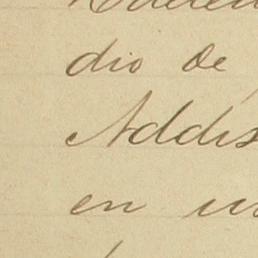 dio de
Addis
en un